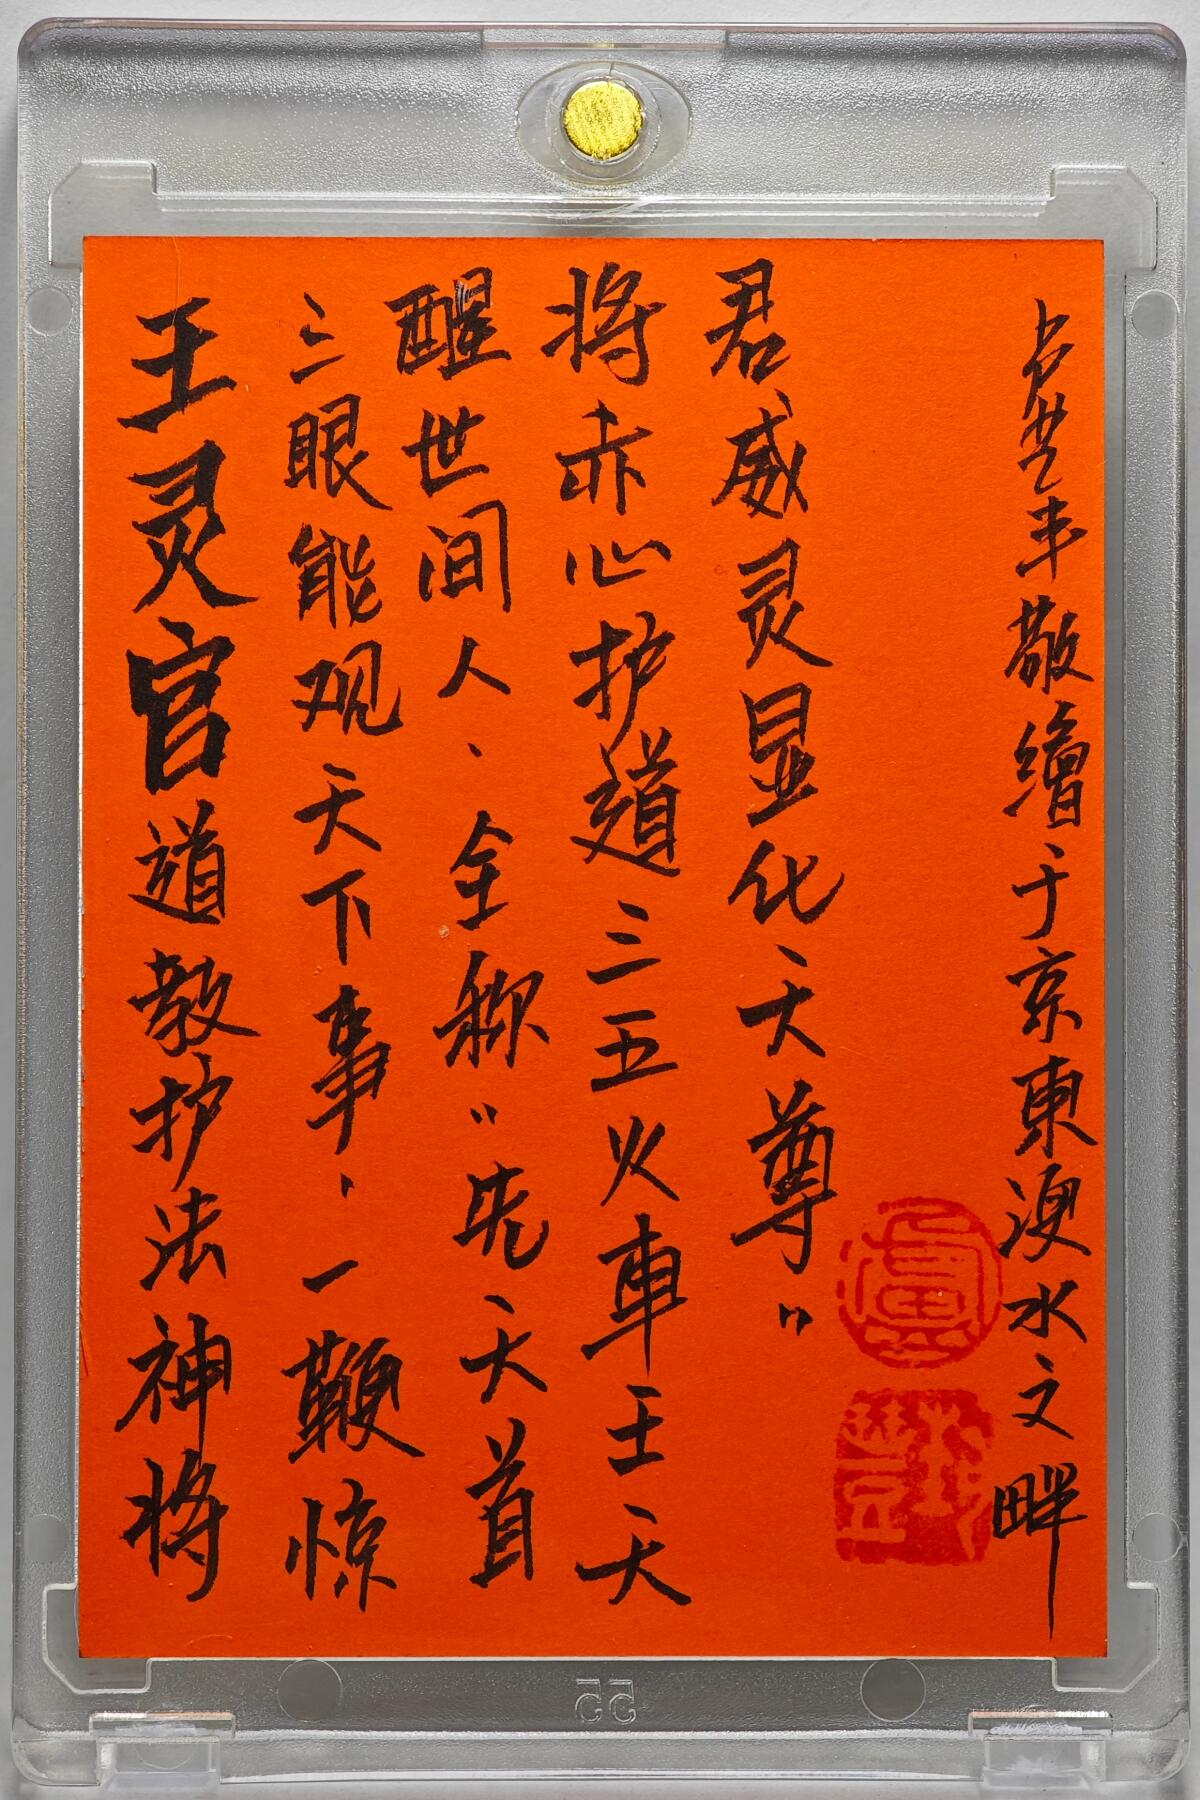 王灵官道教护法神将
三眼能观天下事、一鞭惊
醒世间人、全称“先天首
将赤心护道三五火車王天
君威灵显化天尊”
卢丰敬繪于京東浭水文畔
盧
55